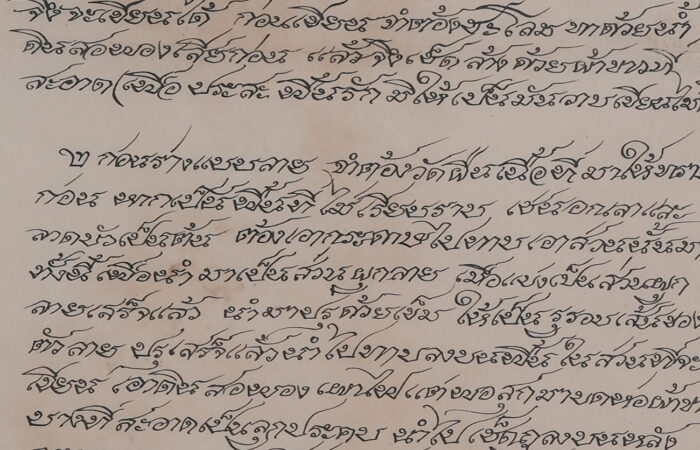 จึงจะเขียนได้ ก่อนเขียน จำต้องชะโลม ทาด้วยน้ำ
ดินสอพองเสียก่อน แล้วจึงเช็ด ล้างด้วยผ้าขาวที่
สะอาด (เพื่อ ประสะ พื้นรัก มิให้เป็นมันวาบเขียนไม่
๒ ก่อนร่างแบบลาย จำต้องวัดผืนเนื้อที่มาให้ทราบ
ก่อน หากเป็นพื้นที่ไม่เรียบราบ เช่นอกเลาและ
ลวดบัวเป็นต้น ต้องเอากระดาษไปทาบเอาส่วนนั้นมา
ทั้งนี้เพื่อนำมาเป็นส่วนผูกลาย เมื่อแบ่งเป็นส่วนผูก
ลายเสร็จแล้ว นำมาปรุด้วยเข็ม ให้เป็นรูรอบเส้นของ
ตัวลาย ปรุเสร็จแล้วนำไปทาบลงบนพื้น ในส่วนที่จะ
เขียน เอาดินสอพอง เผาไฟแต่พอสุกมาบดห่อผ้าขาว
บางที่สะอาดเป็นลูกประคบ นำไปเช็ดถูลงบนหลัง